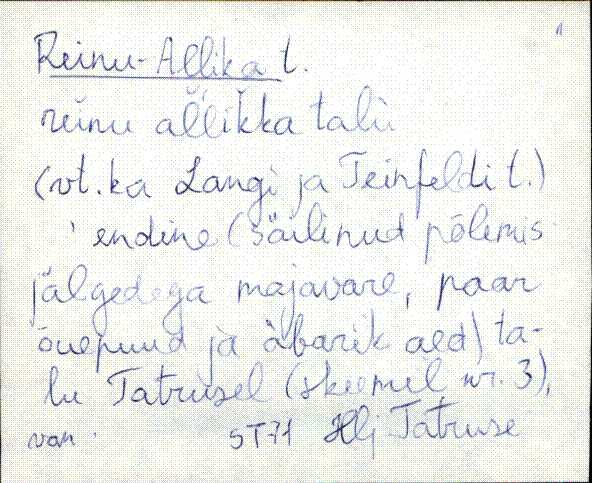 1
Reinu-Allika t.
reinu allikka talu
(vt. ka Langi ja Teinfeldi t.)
endine (säilinud põlemis
jälgedega majavare, paar
õuepuud ja abarik aed) ta-
lu Tatrusel (skeemil nr. 3),
van. ST71 Hlj Tatruse